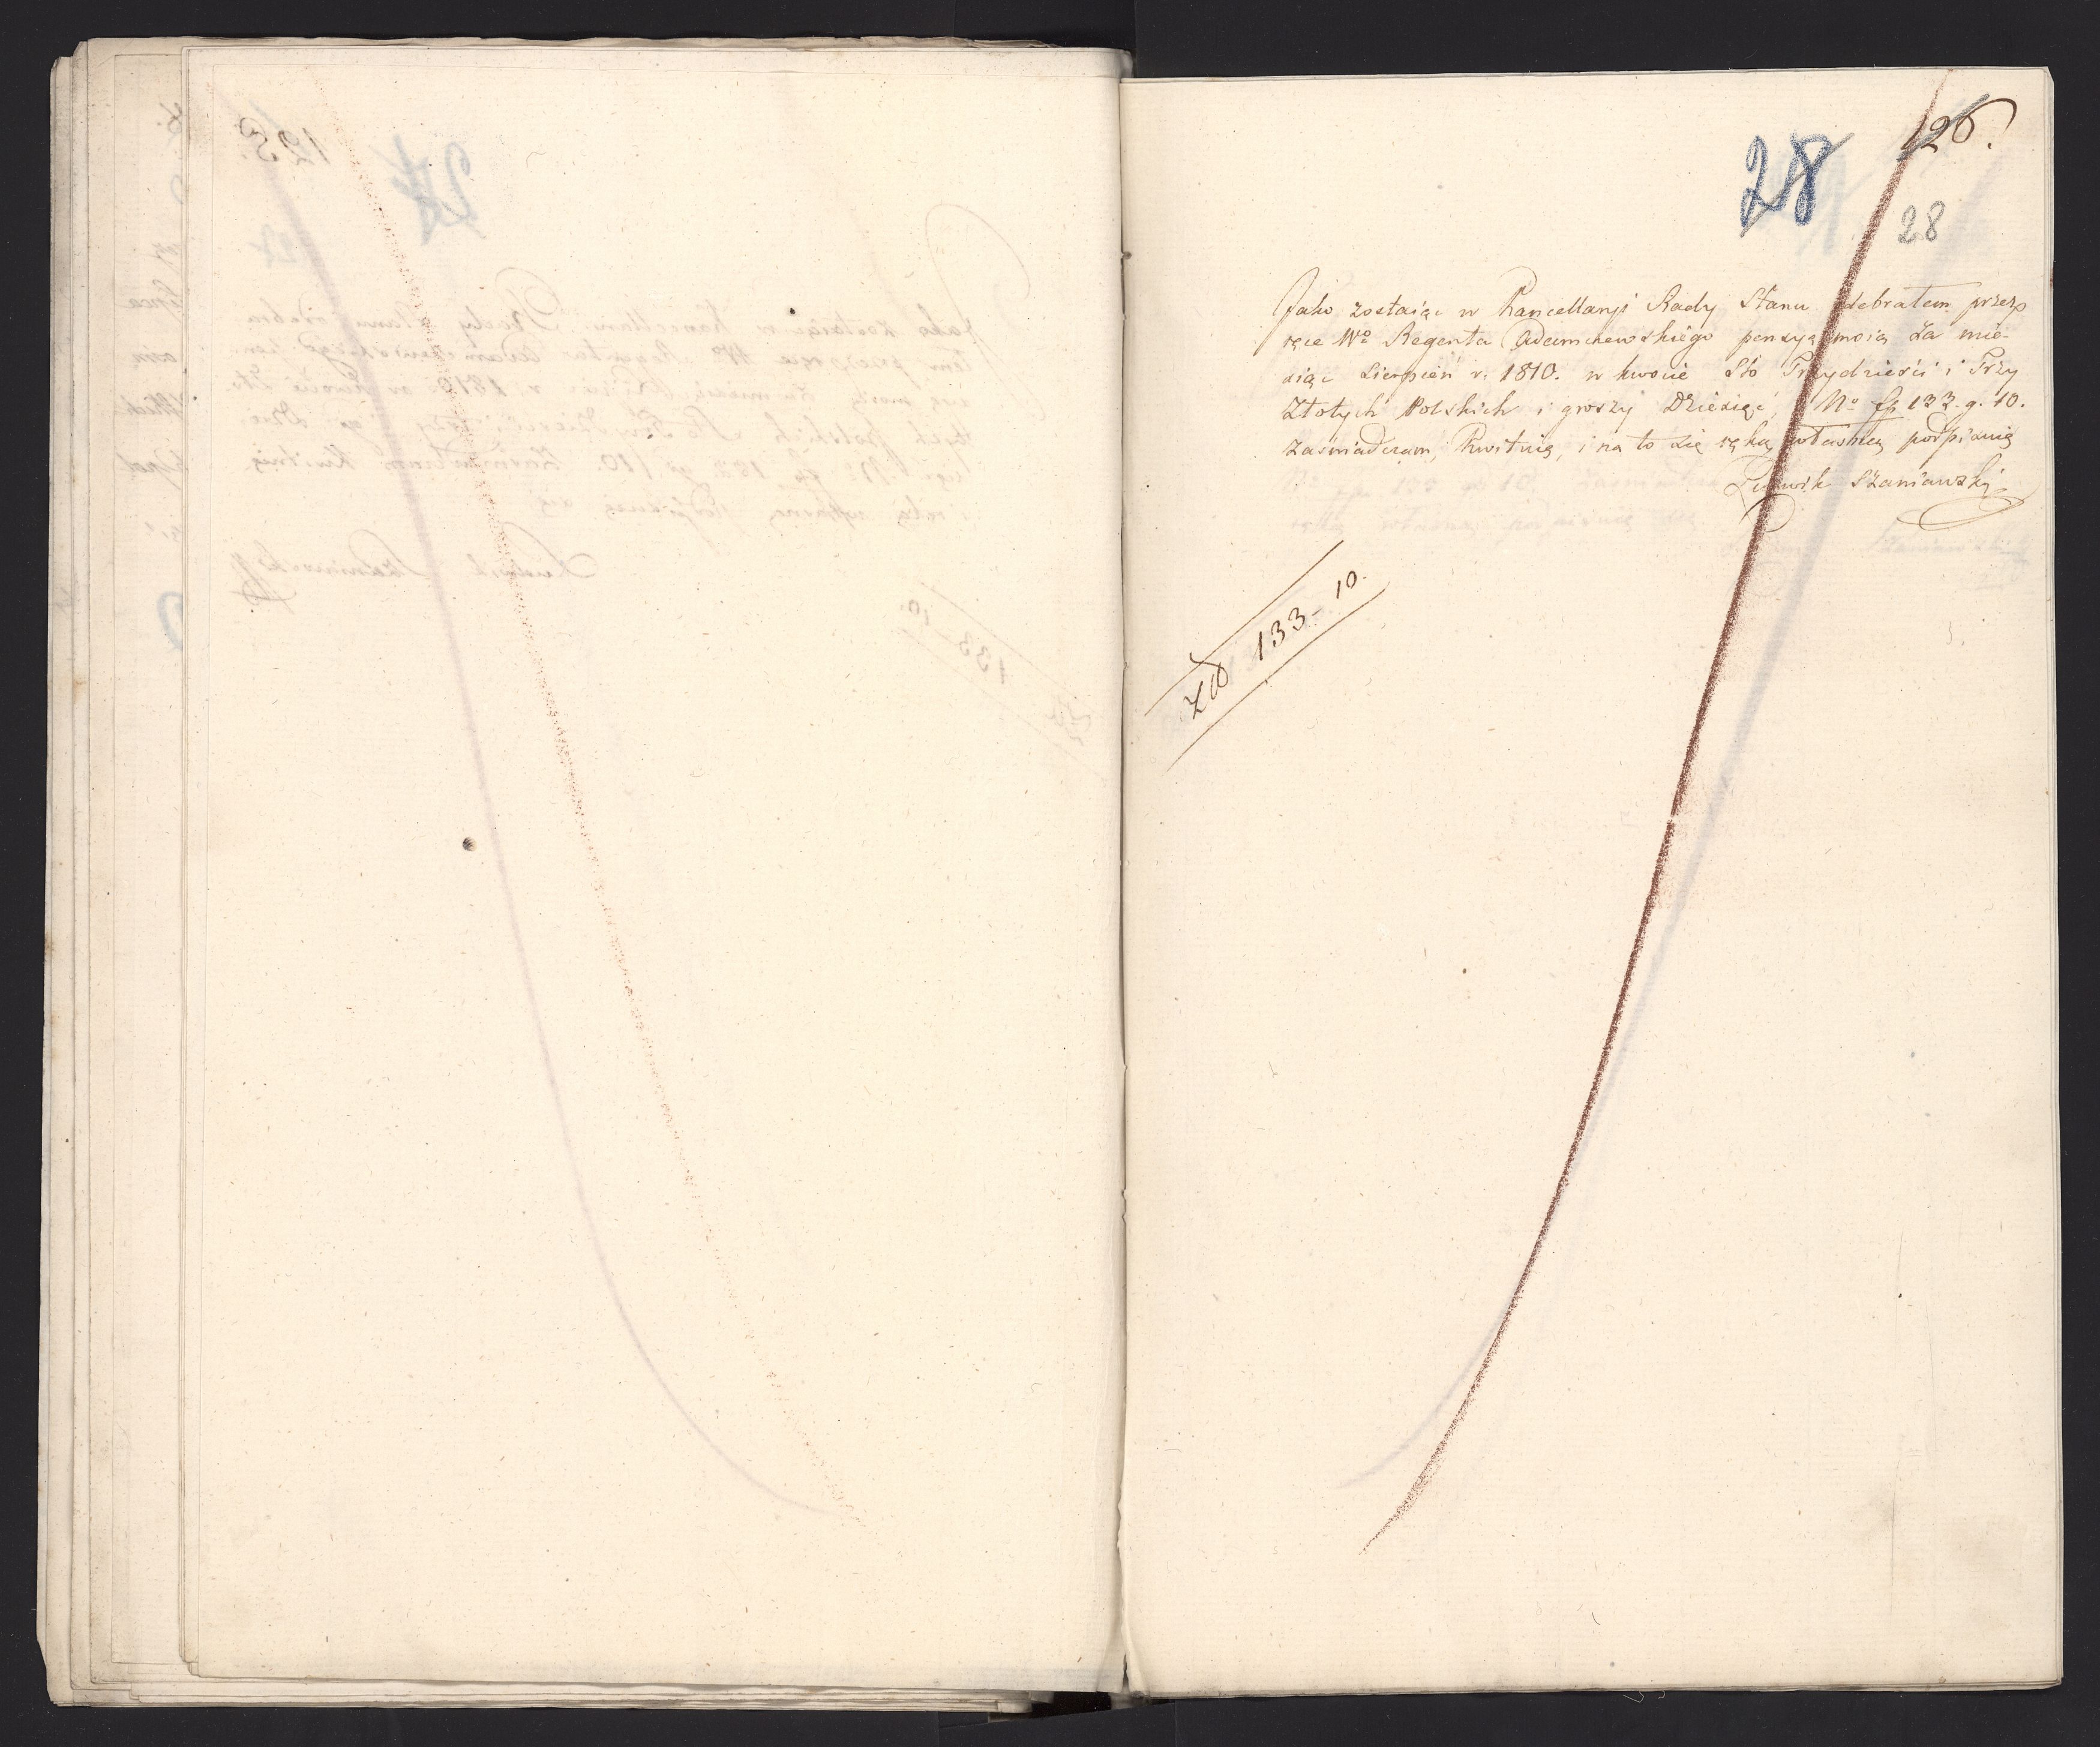 126.
28
28
Jako zostaiąc w Kancellaryi Rady Stanu odebrałem przez
ręce Wo Regenta Adamczewskiego pensyą moią za mie-
siąc Sierpień r. 1810. w kwocie Sto Trzydzieści i Trzy
Złotych Polskich i groszy Dziesięć, No fp 133. g. 10.
zaświadczam, Kwituię, i na to się ręką własną podpisuię
Ludwik Szaniawski
133 - 10.